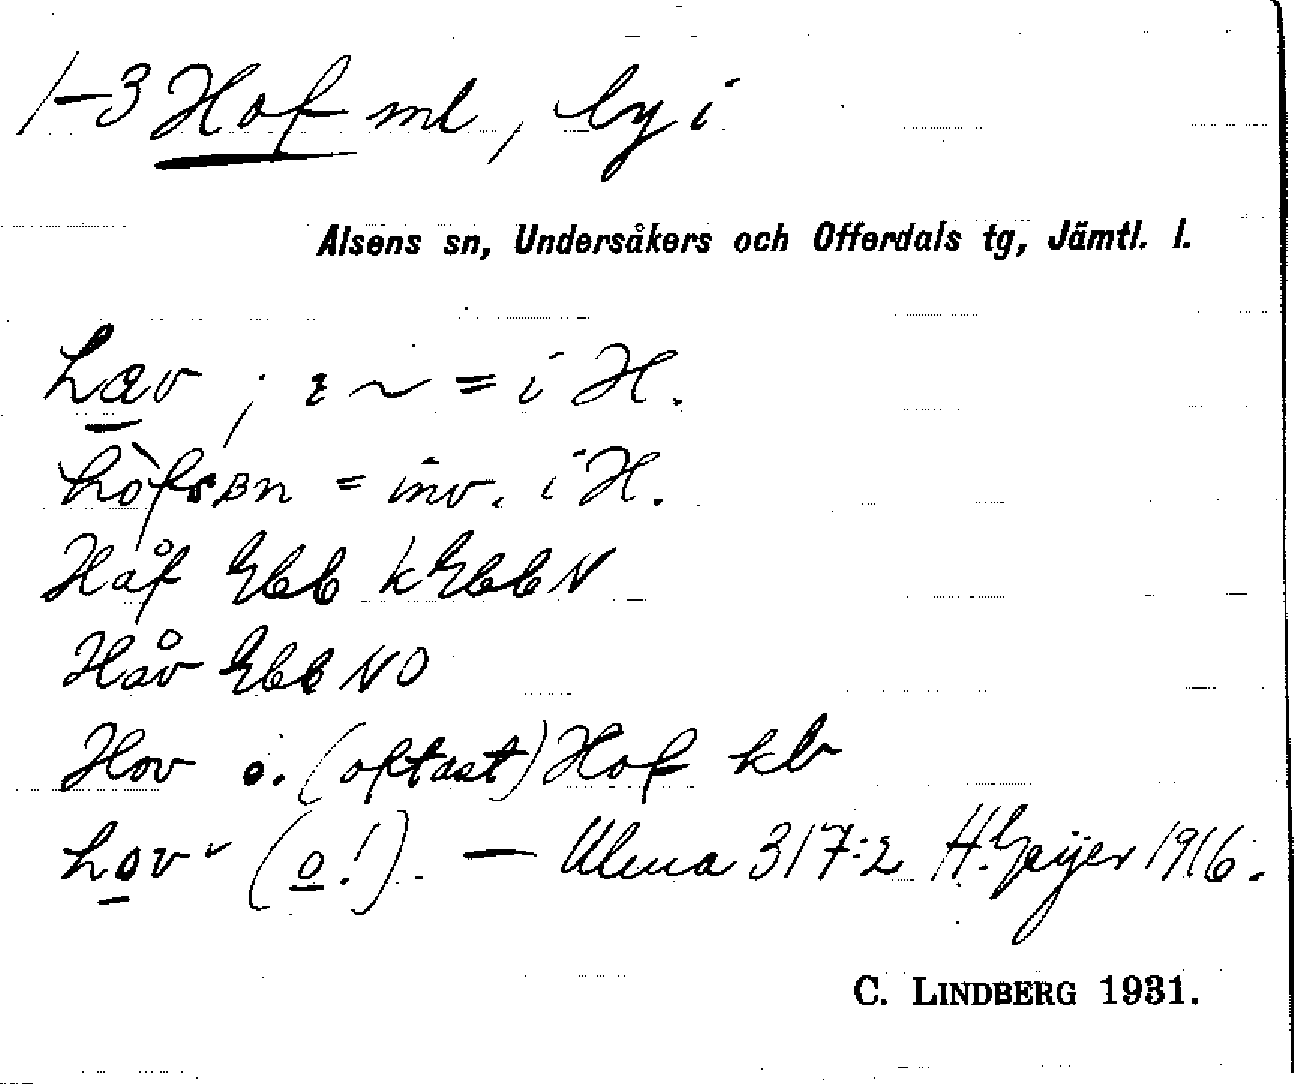 1-3 Hof ml, by i
Alsens sn, Undersåkers och Offerdals tg, Jämtl. l.
hæv ; ı ~ = i H.
= inv. i H.
Håf Ebb k Ebb N
Håv Ebb NO
Hov o. (oftast) Hof kb
hov (o!). — Ulma 317:2 H. Geijer 1916.
C. LINDBERG 1931.